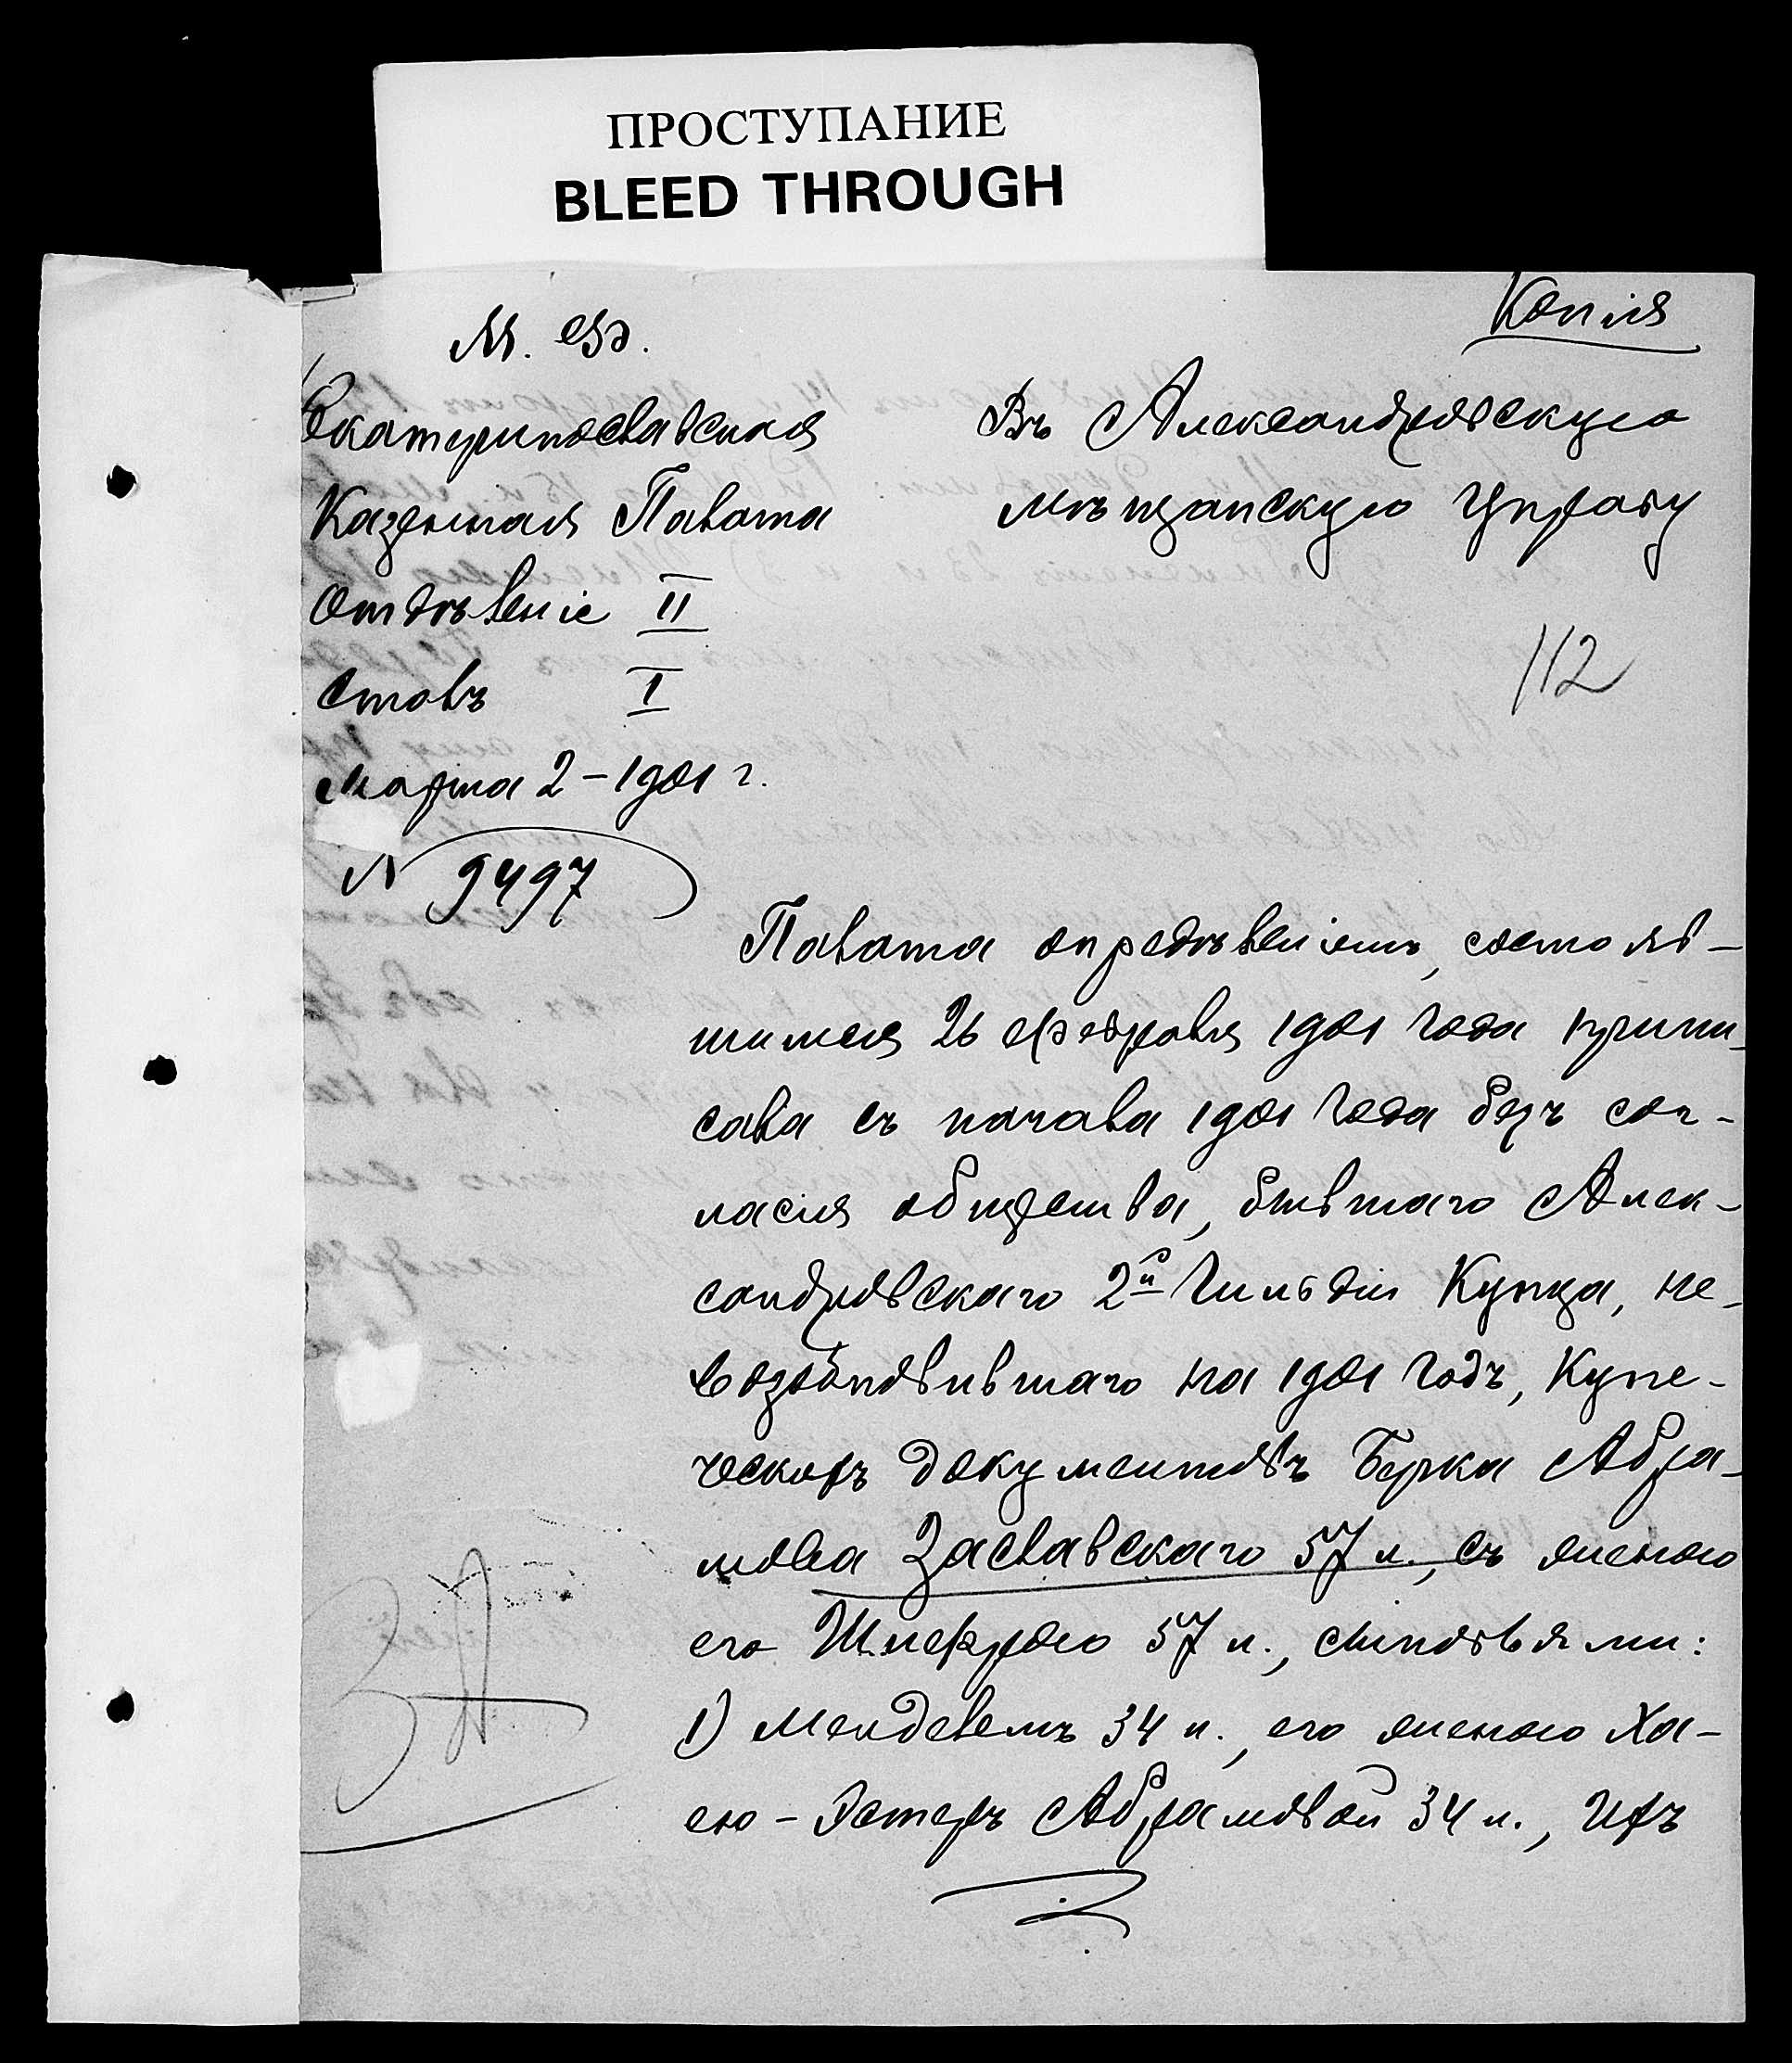 ПРОСТУПАНИЕ
BLEED THROUGH
Копія
М. Ф.
Екатеринославская
Казенная Палата
Отдѣленіе II
Столъ I
Марта 2 – 1901 г.
N 9497
Въ Александровскую
мѣщанскую Управу
112
Палата опредѣленіемъ, состояв-
шимся 26 февраля 1901 года припи-
сала съ начала 1901 года безъ сог-
ласія общества, бывшаго Алек-
сандровскаго 2й Гильдіи Купца, не-
возобновившаго на 1901 годъ, Купе-
ческихъ документовъ Берка Абра-
мова Заславскаго 57 л., съ женою
его Шифрою 57 л., сыновьями:
1) Менделемъ 34 л., его женою Ха-
ею-Эстеръ Абрамовой 34 л., ихъ